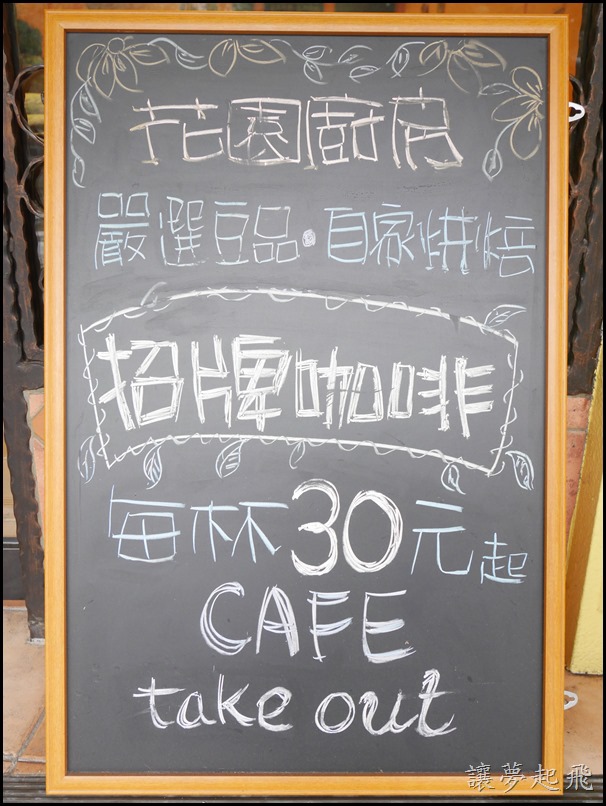 花園廚房
嚴選豆品・自家烘焙
招牌咖啡
每杯30元起
CAFE
take out
讓夢起飛